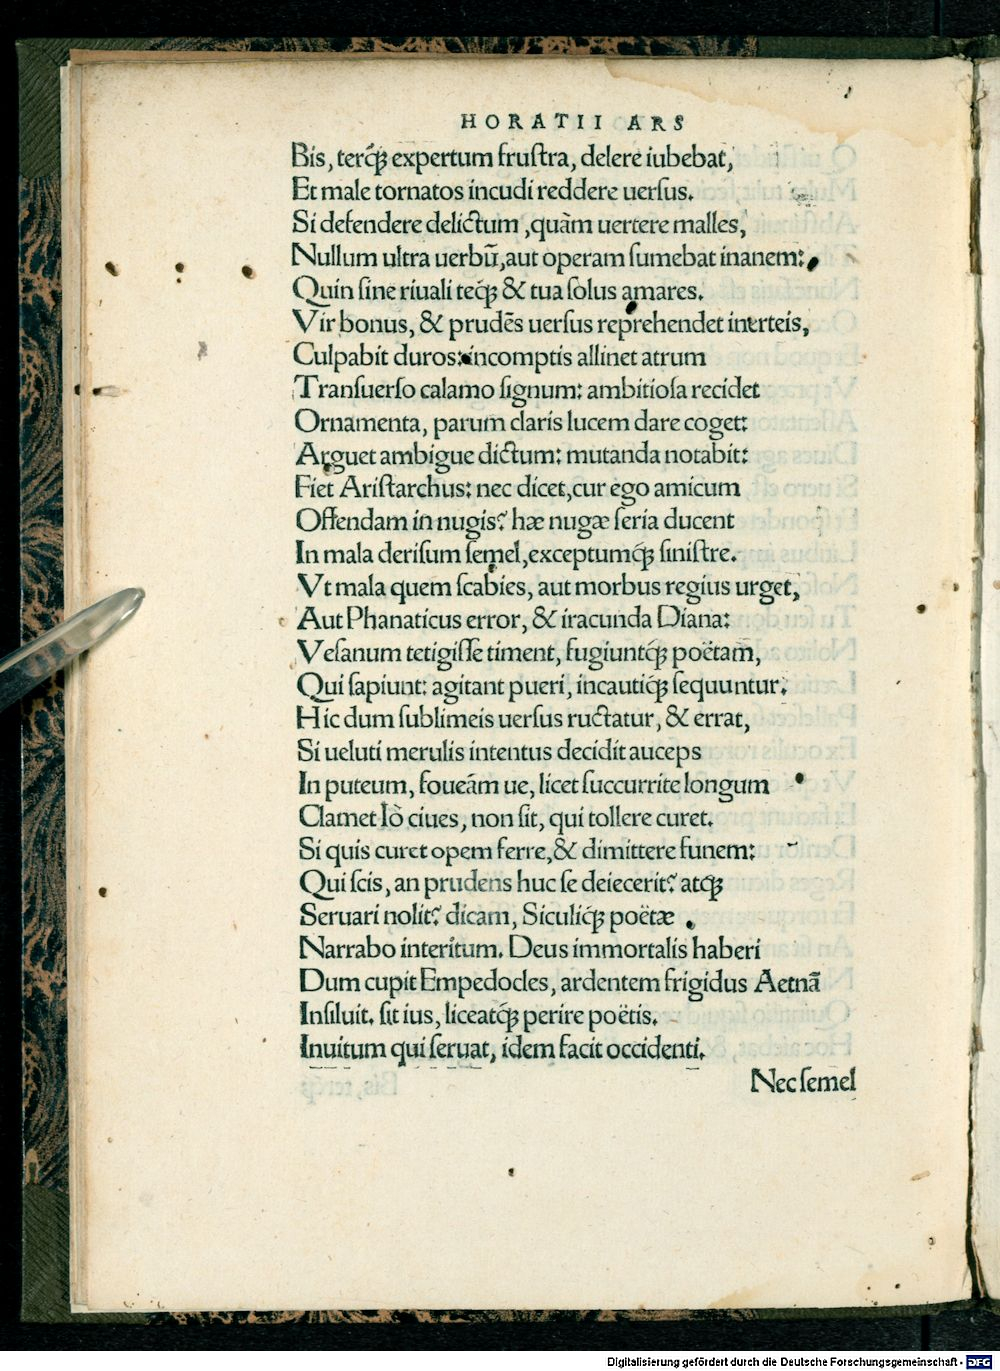 HORATII ARS
Bis, terq́ꝫ expertum fruſtra, delere iubebat,
Et male tornatos incudi reddere uerſus.
Si defendere delictum ,quàm uertere malles,
Nullum ultra uerbũ,aut operam ſumebat inanem:
Quin ſine riuali teq́ꝫ & tua ſolus amares.
Vir bonus, & prudẽs uerſus reprehendet inerteis,
Culpabit duros: incomptis allinet atrum
Tranſuerſo calamo ſignum: ambitioſa recidet
Ornamenta, parum claris lucem dare coget:
Arguet ambigue dictum: mutanda notabit:
Fiet Ariſtarchus: nec dicet,cur ego amicum
Offendam in nugis? hæ nugæ ſeria ducent
In mala deriſum ſemel,exceptumq́ꝫ ſiniſtre.
Vt mala quem ſcabies, aut morbus regius urget,
Aut Phanaticus error, & iracunda Diana:
Veſanum tetigiſſe timent, fugiuntq́ꝫ poëtam,
Qui ſapiunt: agitant pueri, incautiq́ꝫ ſequuntur.
Hic dum ſublimeis uerſus ructatur, & errat,
Si ueluti merulis intentus decidit auceps
In puteum, foueám ue, licet ſuccurrite longum
Clamet Iò ciues, non ſit, qui tollere curet.
Si quis curet opem ferre,& dimittere funem:
Qui ſcis, an prudens huc ſe deiecerit? atq́ꝫ
Seruari nolit? dicam, Siculiq́ꝫ poëtæ
Narrabo interitum. Deus immortalis haberi
Dum cupit Empedocles, ardentem frigidus Aetnã
Inſiluit. ſit ius, liceatq́ꝫ perire poëtis.
Inuitum qui ſeruat, idem facit occidenti.
Nec ſemel
Digitalisierung gefördert durch die Deutsche Forschungsgemeinschaft - DFG